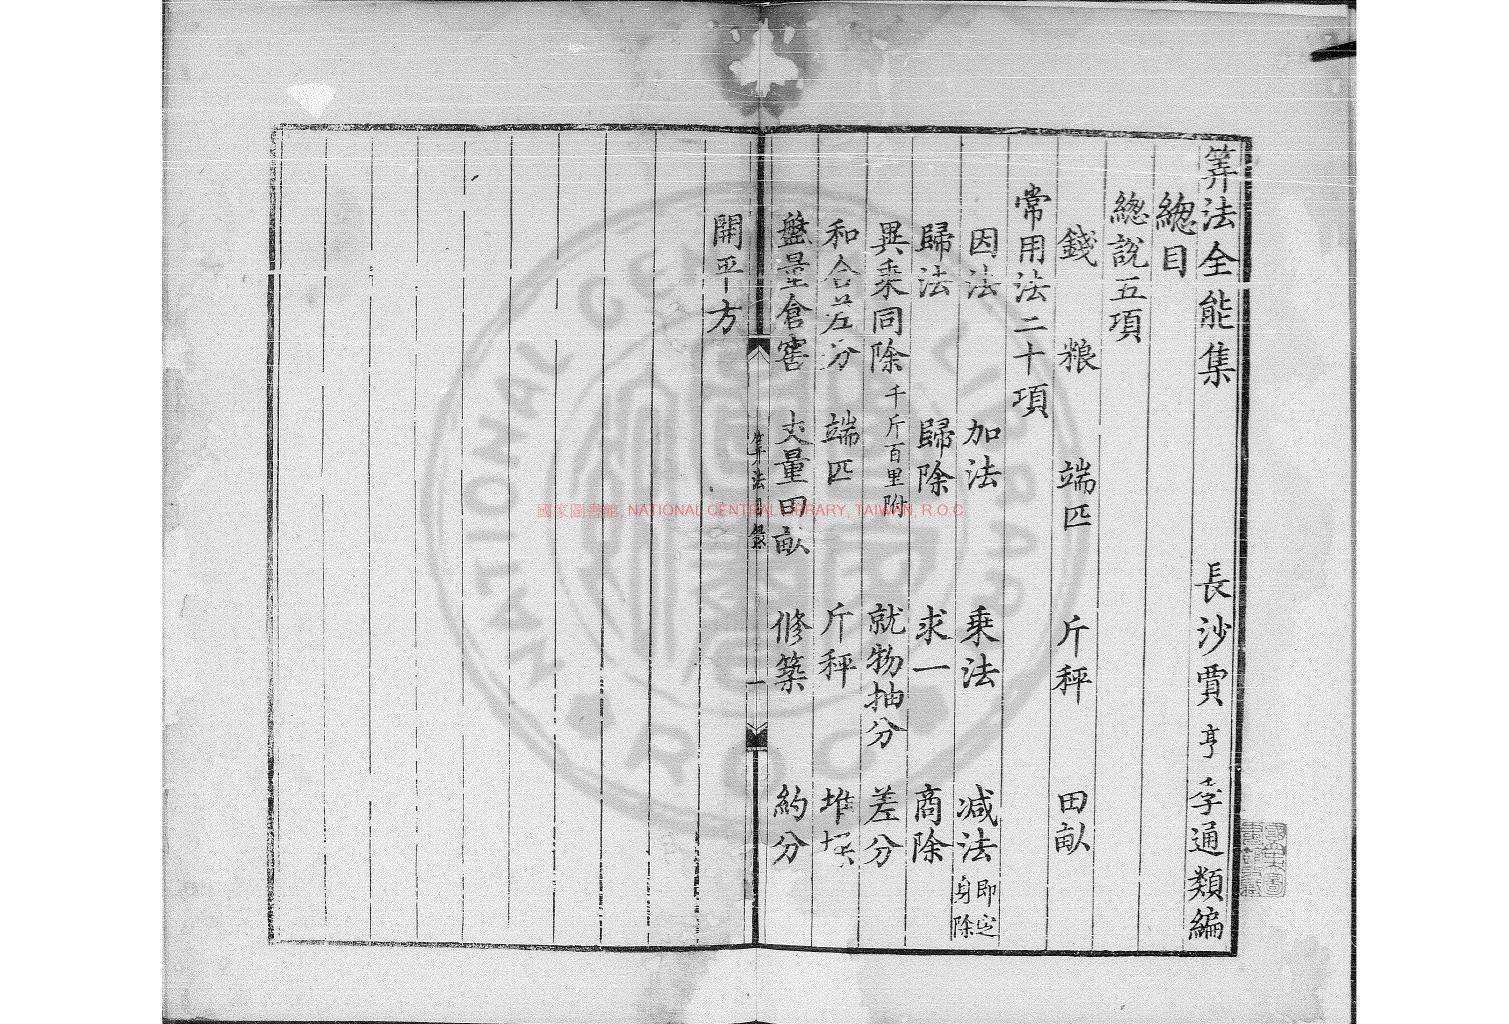 算法全能集 長沙賈亨季通類編
總目
總說五項
錢 粮 端匹 斤秤 田畝
常用法二十項
因法 加法 乗法 减法即定身除
歸法 歸除 求一 商除
異乗同除千斤百里附 就物抽分 差分
和合差分 端匹 斤秤 堆垜
盤量倉窖 丈量田畝 修築 約分
開平方
算法目錄 一
國家圖書館, NATIONAL CENTRAL LIBRARY, TAIWAN, R.O.C
NATIONAL CENTRAL LIBRARY
R O C